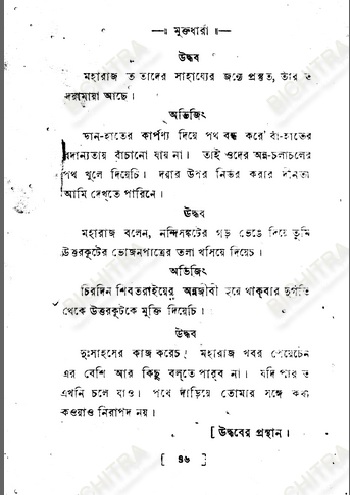 —॥ মুক্তধারা ॥—
উদ্ধব
মহারাজ ত তাদের সাহায্যের জন্যে প্রস্তুত, তাঁর ত
দয়ামায়া আছে।
অভিজিৎ
ডান-হাতের কার্পণ্য দিয়ে পথ বন্ধ করে' বাঁ-হাতের
বদান্যতায় বাঁচানো যায় না। তাই ওদের অন্ন-চলাচলের
পথ খুলে দিয়েচি। দয়ার উপর নির্ভর করার দীনতা
আমি দেখ্‌তে পারিনে।
উদ্ধব
মহারাজ বলেন, নন্দিসঙ্কটের গড় ভেঙে দিয়ে তুমি
উত্তরকূটের ভোজনপাত্রের তলা খসিয়ে দিয়েচ।
অভিজিৎ
চিরদিন শিবতরাইয়ের অন্নজীবী হয়ে থাক্‌বার দুর্গতি
থেকে উত্তরকূটকে মুক্তি দিয়েচি।
উদ্ধব
দুঃসাহসের কাজ করেচ। মহারাজ খবর পেয়েচেন
এর বেশি আর কিছু বল্‌তে পারব না। যদি পার ত
এখনি চলে যাও। পথে দাঁড়িয়ে তোমার সঙ্গে কথা
কওয়াও নিরাপদ নয়।
[ উদ্ধবের প্রস্থান।
BICHITRA